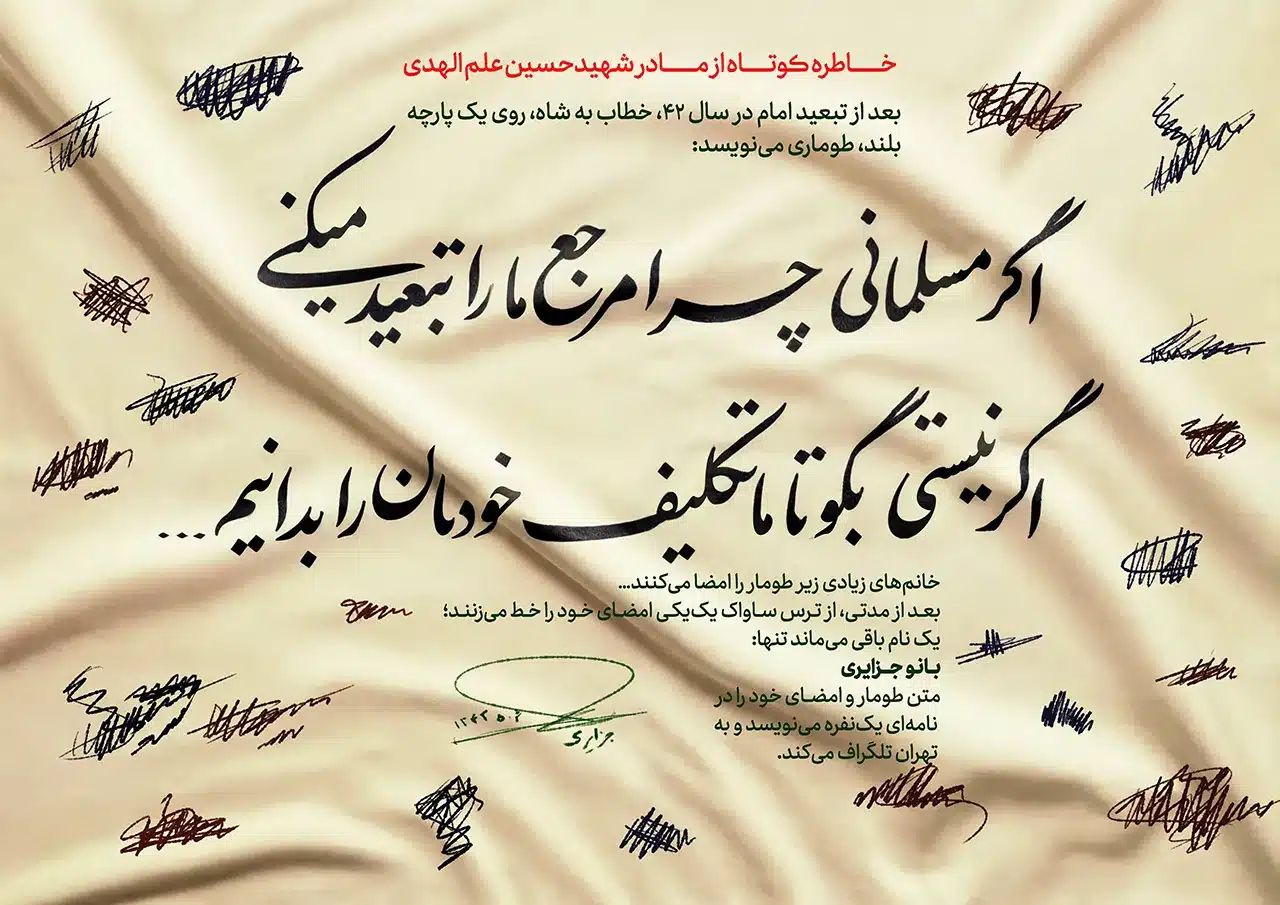 خاطره کوتاه از مادر شهید حسین علم الهدی
بعد از تبعید امام در سال ۴۲، خطاب به شاه، روی یک پارچه
بلند، طوماری می‌نویسد:
اگر مسلمانی چرا مرجع ما را تبعید میکنی
اگر نیستی بگو تا ما تکلیف خودمان را بدانیم...
خانم‌های زیادی زیر طومار را امضا می‌کنند...
بعد از مدتی، از ترس ساواک یک‌یکی امضای خود را خط می‌زنند؛
یک نام باقی می‌ماند تنها:
بانو جزایری
متن طومار و امضای خود را در
نامه‌ای یک‌نفره می‌نویسد و به
تهران تلگراف می‌کند.
جزایری